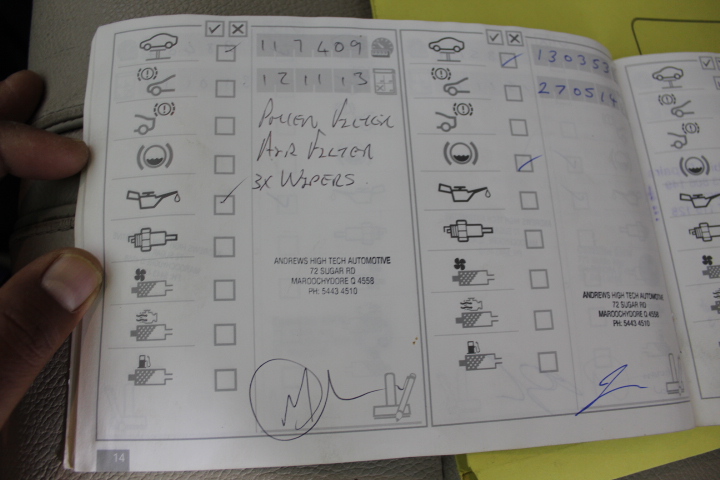 117409
121113
POLLEN FILTER
AIR FILTER
3X WIPERS
ANDREWS HIGH TECH AUTOMOTIVE
72 SUGAR RD
MAROOCHYDORE Q 4558
PH: 5443 4510
14
130353
270514
ANDREWS HIGH TECH AUTOMOTIVE
72 SUGAR RD
MAROOCHYDORE Q 4558
PH: 5443 4510